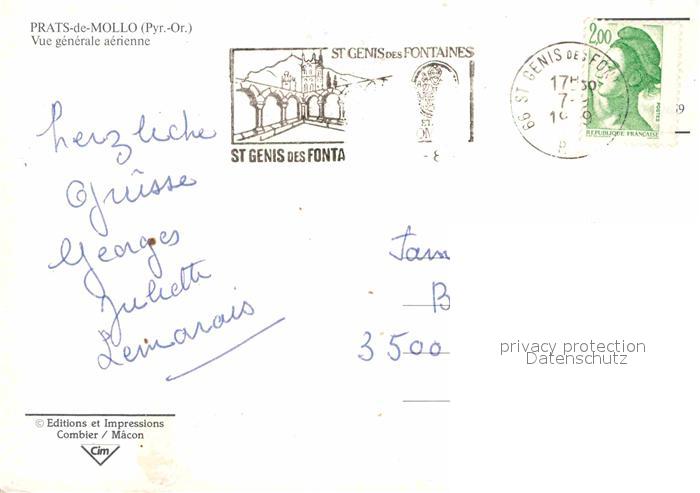 PRATS-de-MOLLO (Pyr.-Or.)
Vue générale aérienne
ST GENIS DES FONTAINES
ST GENIS DES FONTA
66 ST GENIS DES FONT
17H30
7-
19
2,00
POSTES
REPUBLIQUE FRANÇAISE
herzliche
Grüsse
Georges
Juliette
Lemarais
Fam
B
3500
privacy protection
Datenschutz
© Editions et Impressions
Combier / Mâcon
Cim